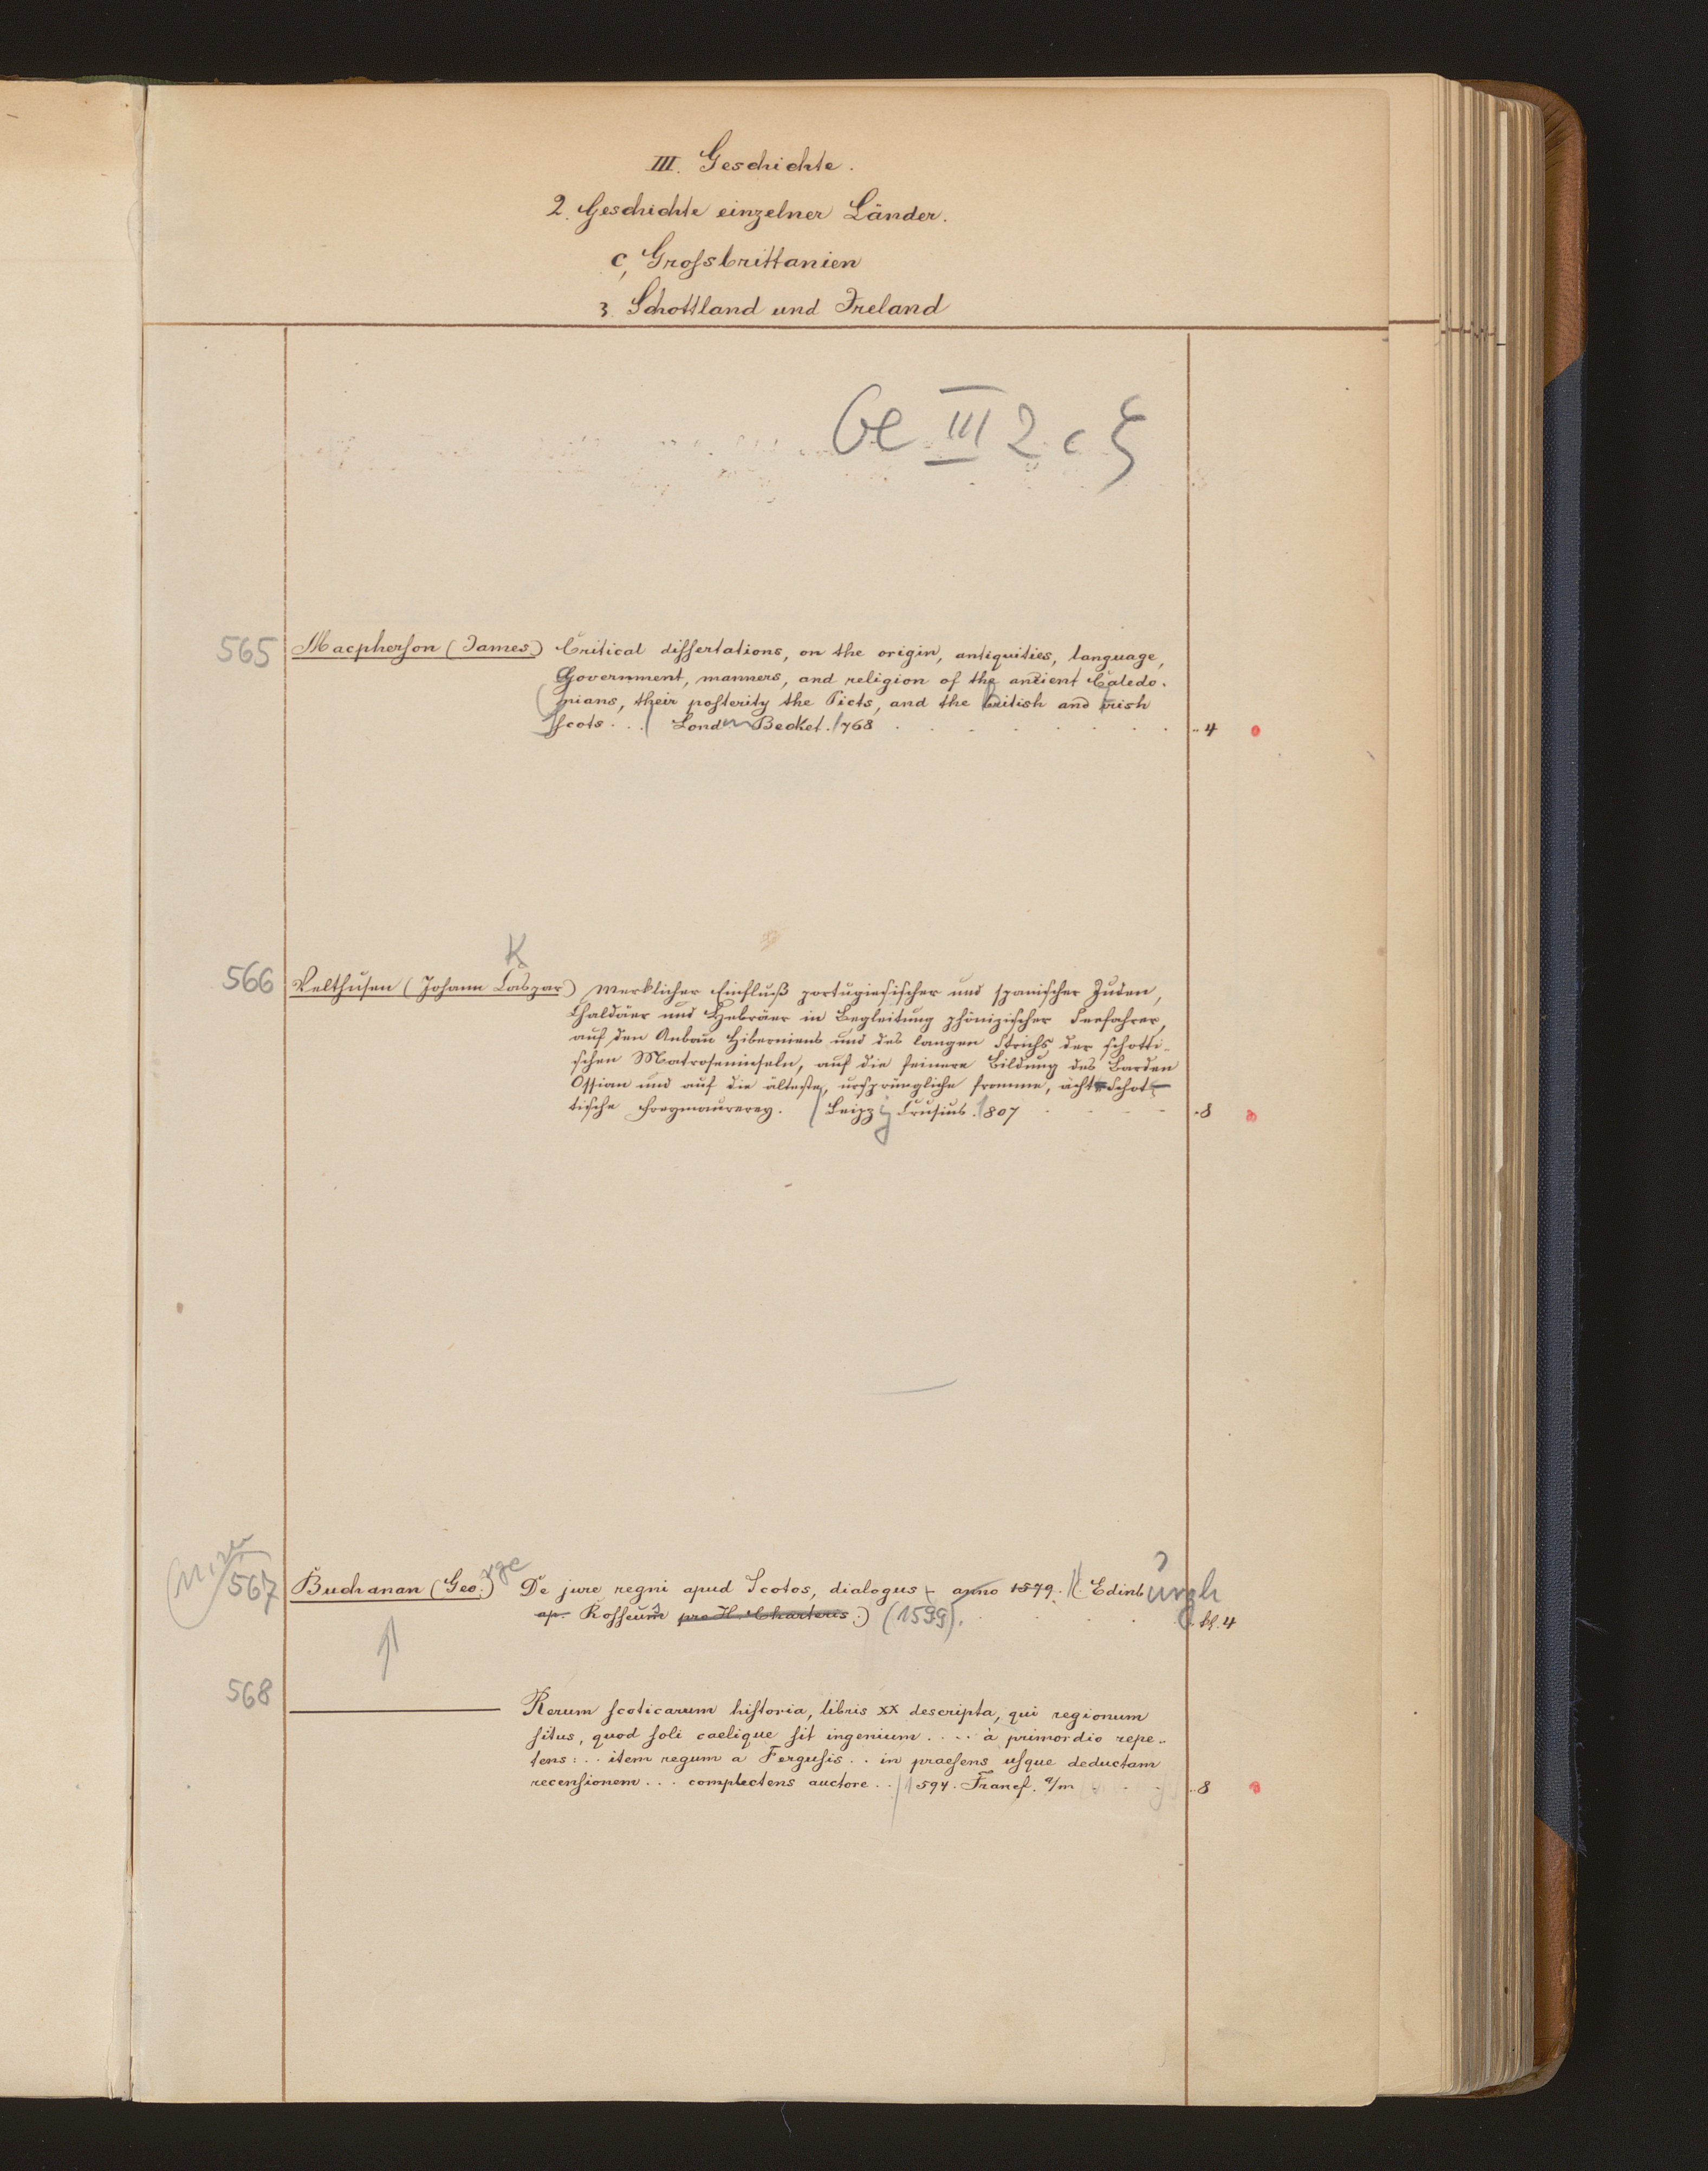 III. Geschichte.
2. Geschichte einzelner Länder.
c, Grossbrittanien
3. Schottland und Ireland
Ge III 2 c ξ
565 Macpherson (James) Critical dissertations, on the origin, antiquities, language,
Government, manners, and religion of the ancient Caledo-
nians, their posterity the Picts, and the british and irish
Scots . . . Lond Becket. 1768 . . . . . . . .. 4
K
566 Velthusen (Johann Caspar) Merklicher Einfluß portugiesischer und spanischer Juden,
Chaldäer und Hebräer in Begleitung phönizischer Seefahrer,
auf den Anbau Hiberniens und des langen Strichs der schotti-
schen Matroseninseln, auf die feinere Bildung des Barden
Ossian und auf die älteste, ursprüngliche fromme, ächt-Schot-
tische Freymaurerey. Leipzig Crusius. 1807 - - - - .8
567 Buchanan (George) De jure regni apud Scotos, dialogus anno 1579. (Edinburgh
ap. Rosseum pro H. Charteris.) (1599). . . . . kl. 4
568 ——— Rerum scoticarum historia, libris XX descripta, qui regionum
situs, quod soli caelique sit ingenium . . . . à primordio repe-
tens: . . item regum a Fergusio . . in praesens usque deductam
recensionem . . . complectens auctore . . 1594. Francf. a/m . . . .. 8